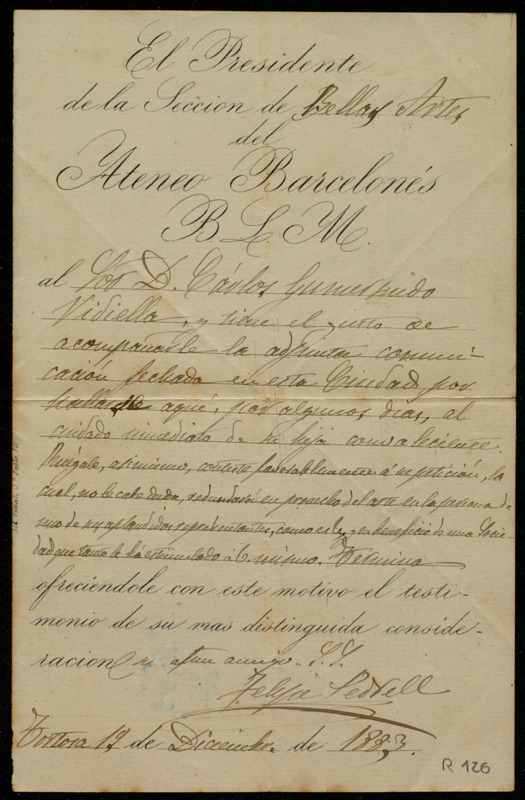 El Presidente
de la Sección de Bellas Artes
del
Ateneo Barcelonés
B. L. M.
al Sor D. Cárlos Gumersindo
Vidiella, y tiene el gusto de
acompañarle la adjunta comuni-
cación fechada en esta Ciudad por
hallarse aquí, por algunos dias, al
cuidado inmediato de su hija convaleciente.
Ruégale, asimismo, conteste favorablemente á su petición, la
cual, no le cabe duda, redundará en provecho del arte en la persona de
uno de sus aplaudidos representantes, como es V., y en beneficio de una Socie
dad que tanto le há estimulado á V. mismo. Termina
ofreciéndole con este motivo el testi-
monio de su mas distinguida conside-
racion su afmo amigo. S. S.
Felipe Pedrell
Tortosa 19 de Diciembre de 1883.
R 126